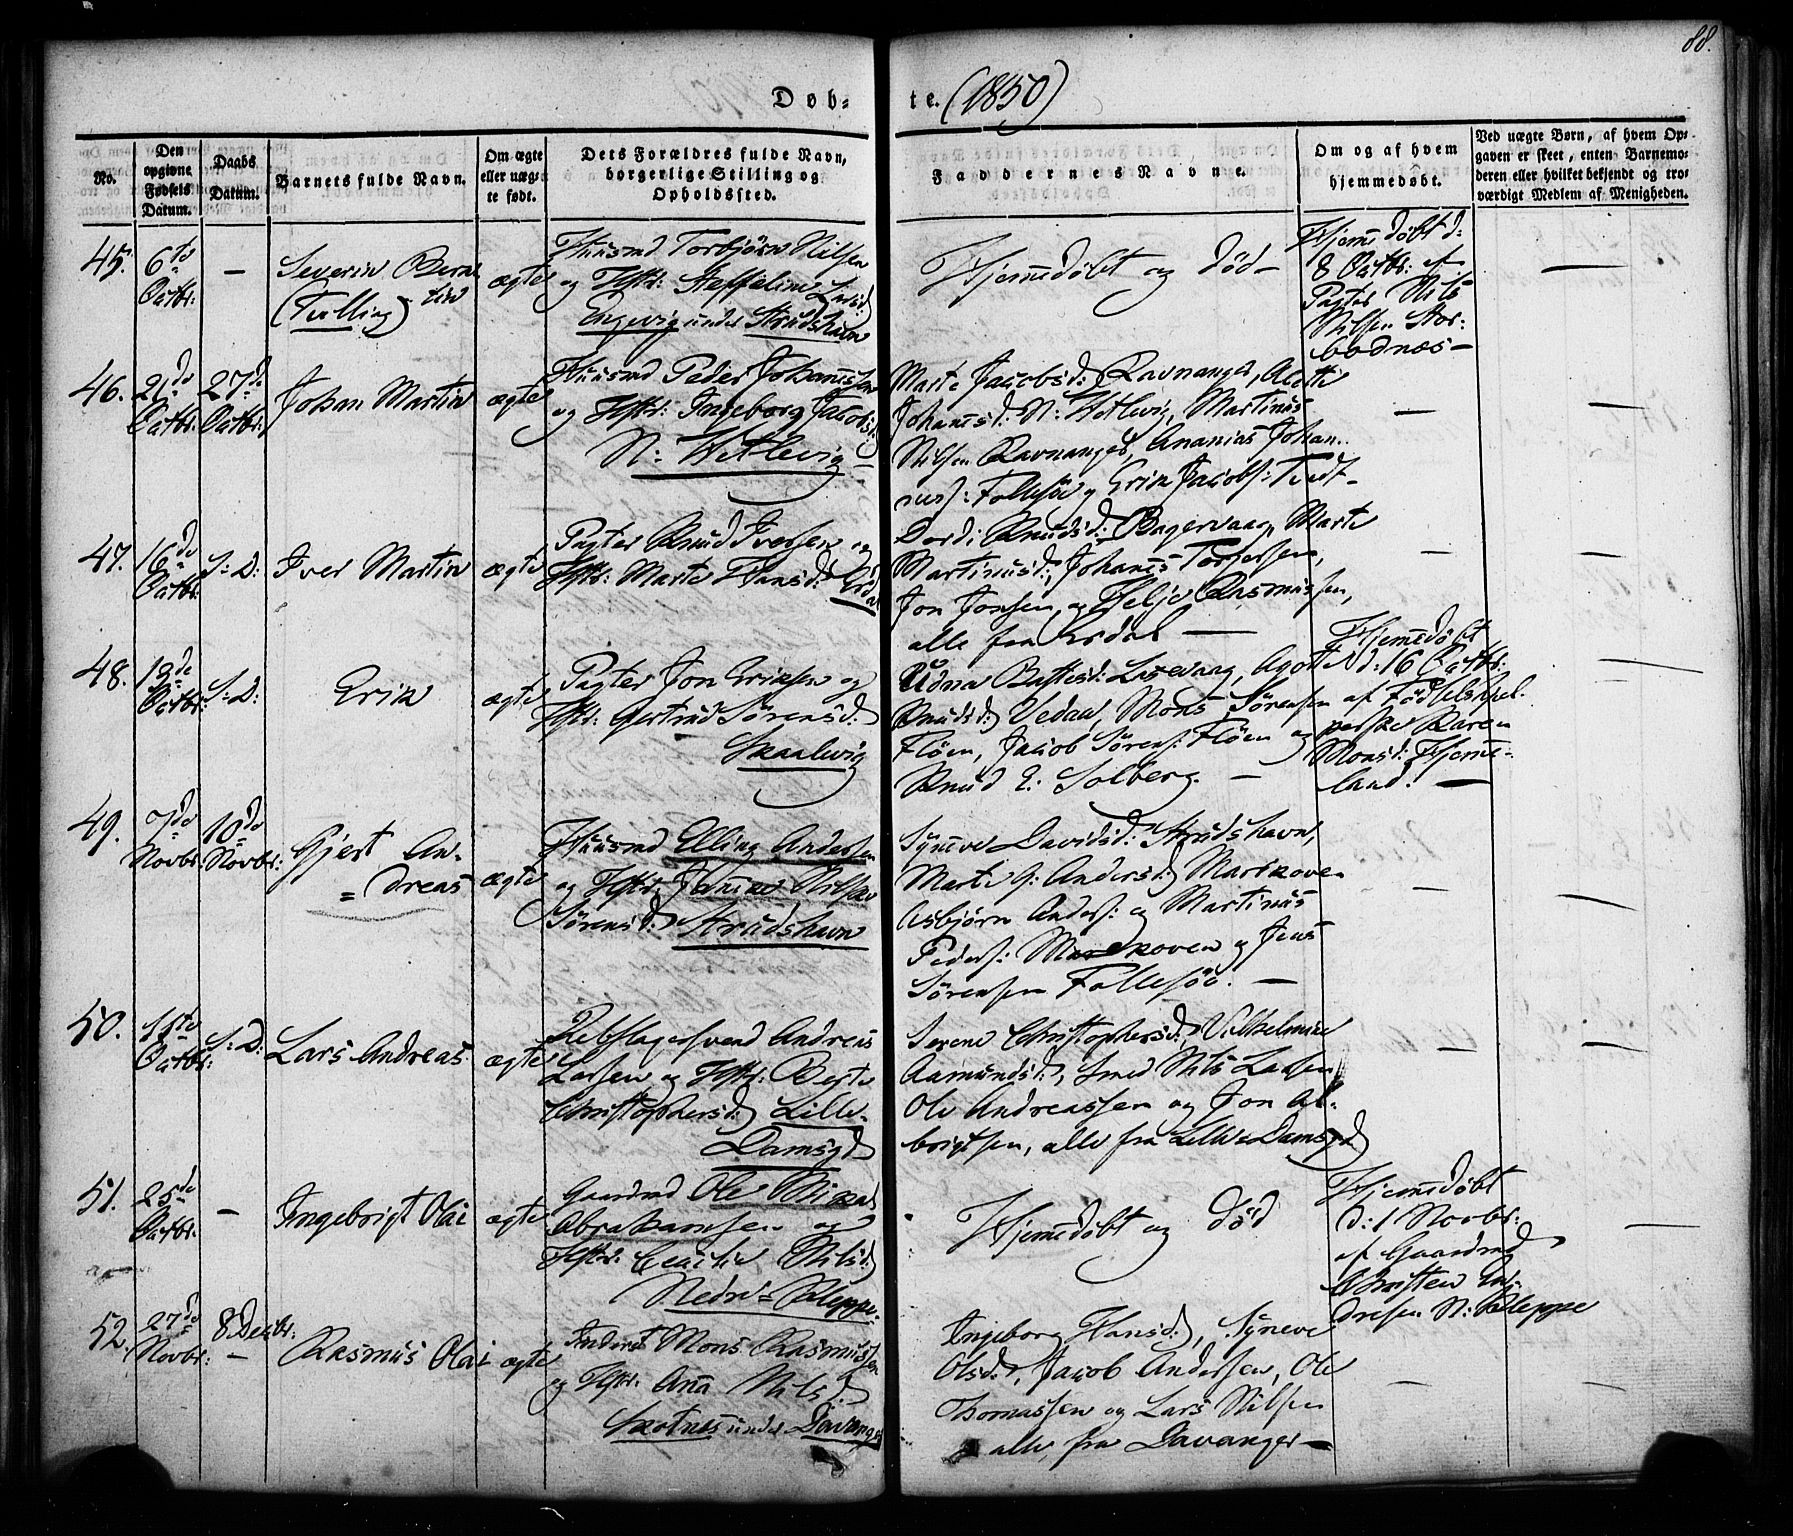 88.
Døb- te. (1850)
No.
Den opgivne Fødsels Datum.
Daabs Datum.
Barnets fulde Navn.
Om ægte eller uægte født.
Dets Forældres fulde Navn, borgerlige Stilling og Opholdssted.
Faddernes Navne.
Om og af hvem hjemmedøbt.
Ved uægte Børn, af hvem Opgaven er skeet, enten Barnemoderen eller hvilket bekjendt og troværdigt Medlem af Menigheden.
45. 6te Octbr: — Severin Bern
(Tvilling) tin
ægte
Huusmd Torbjörn Nilsen
og Hstr: Steffelin Larsd:
Engevig under Strudshavn
Hjemedöbt og död —
Hjemedöbt d:
8 Octbr: af
Pagter Nils
Nilsen Stor:
bodnæs —
46. 21de Octbr: 27de Octbr: Johan Martin
ægte
Huusmd Peder Johannessen
og Hstr: Ingeborg Jacobsd:
N: Wetlevig —
Marte Jacobsd: Ravnanger, Alette
Johannsd: N: Wetlevig, Martinus
Nilsen Ravnanger, Ananias Johan
nes: Follesöe og Erik Jacobs: Tvedt —
47. 16de Octbr: S: D: Iver Martin
ægte
Pagter Knud Iversen og
Hstr: Marte Hansd: Erdal
Dordi Knudsd: Bagervaag, Marte
Martinusd:, Johannes Torgersen,
Jon Jonsen, og Helje Rasmussen,
alle fra Erdal —
48. 13de Octbr: S: D: Erik
ægte
Pagter Jon Eriksen og
Hstr: Gertrud Sørensd:
Skaalevig
Udna Battesd: Laxevaag, Agote
Knudsd: Vedaa, Mons Sörensen
Flöen, Jacob Sörens: Flöen og
Knud E: Solberg. —
Hjemedöbt
d: 16 Octbr:
af Födselshjel
perske Karen
Monsd: Hjeme-
land. —
49. 7de Novbr: 10de Novbr: Gjert An-
= dreas
ægte
Huusmd Elling Andersen
og Hstr: Janike Nilsine
Sörensd: Strudshavn
Syneve Davidsd: Strudshavn,
Marte G: Andersd: Marikoven
Asbjörn Anders: og Martinus
Peders: Marikoven og Jens
Sörensen Follesöe. —
50. 11te Octbr: S: D: Lars Andreas
ægte
Rebslagersvend Andreas
Larsen og Hstr: Berte
Christophersd: Lille-
Damsgd
Serene Christophersd:, Vilhelmine
Aamundsd:, Smed Nils Larsen
Ole Andreassen og Jon Al-
brigtsen, alle fra Lille-Damsgd
51. 25de Octbr: — Ingebrigt Olai
ægte
Gaardmd Ole Mikal
Abrahamsen og
Hstr: Cecilie Nilsd:
Nedre=Kleppe.
Hjemedöbt og död
Hjemedöbt
d: 1 Novbr:
af Gaardmd
Christen An-
dresen N: Kleppe
52. 27de Novbr: 8 Decbr: — Rasmus Olai
ægte
Inderst Mons Rasmussen
og Hstr: Ana Nilsd:
Skotnes under Davanger
Ingeborg Hansd:, Syneve
Olsd:, Jacob Andersen, Ole
Thomassen og Lars Nilsen
alle fra Davanger —